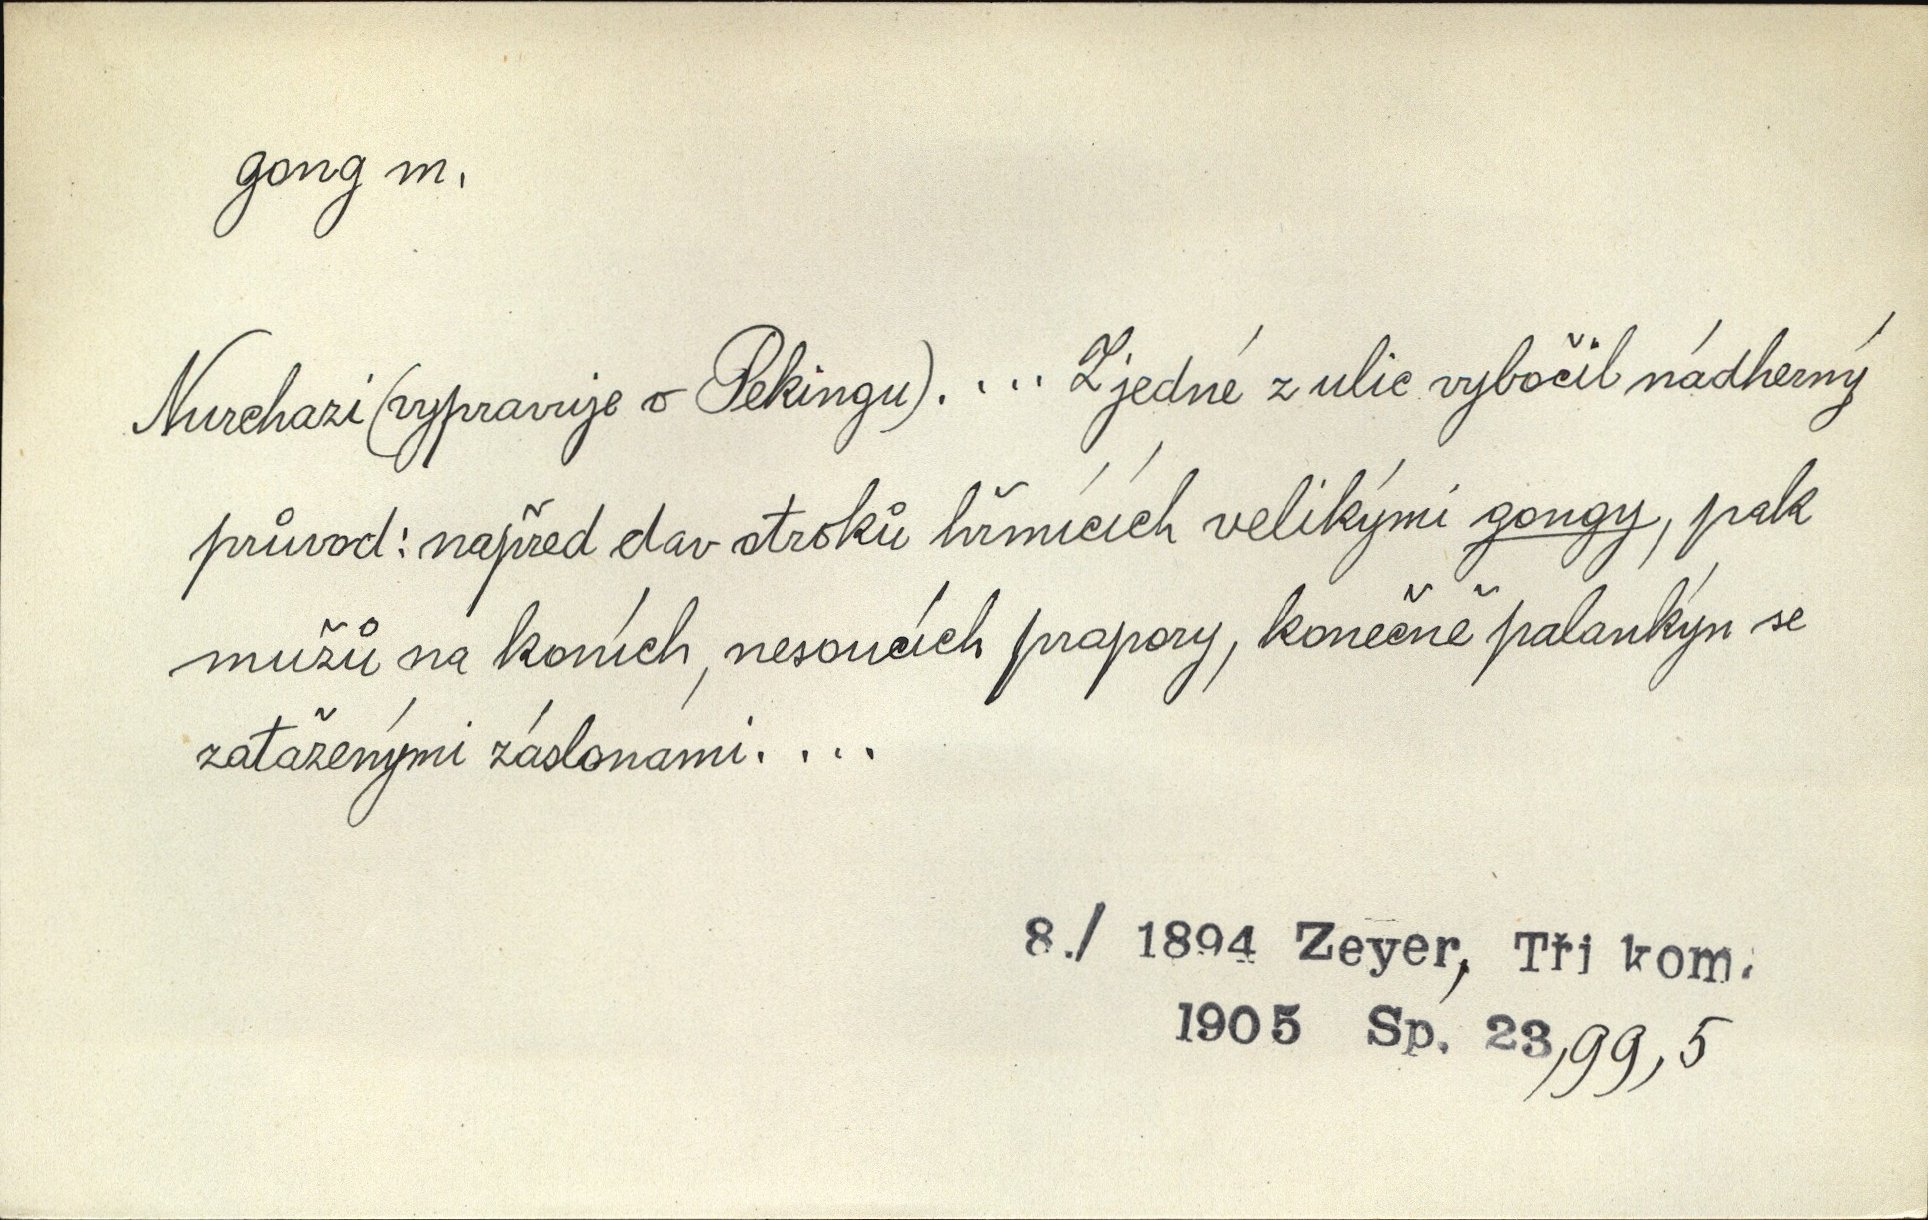 gong m.
Nurchazi (vypravuje o Pekingu). ... Z jedné z ulic vybočil nádherný
průvod: napřed dav otroků hřmících velikými gongy, pak
mužů na koních, nesoucích prapory, konečně palankýn se
zataženými záslonami. ...
8./ 1894 Zeyer, Tři kom.
1905 Sp. 23,99,5